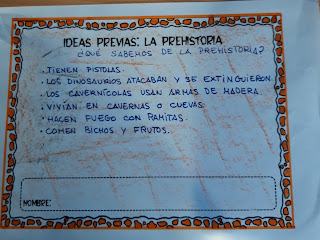 IDEAS PREVIAS: LA PREHISTORIA
¿QUÉ SABEMOS DE LA PREHISTORIA?
• TIENEN PISTOLAS.
• LOS DINOSAURIOS ATACABAN Y SE EXTINGUIERON.
• LOS CAVERNÍCOLAS USAN ARMAS DE MADERA.
• VIVÍAN EN CAVERNAS O CUEVAS.
• HACEN FUEGO CON RAMITAS.
• COMEN BICHOS Y FRUTOS.
NOMBRE: